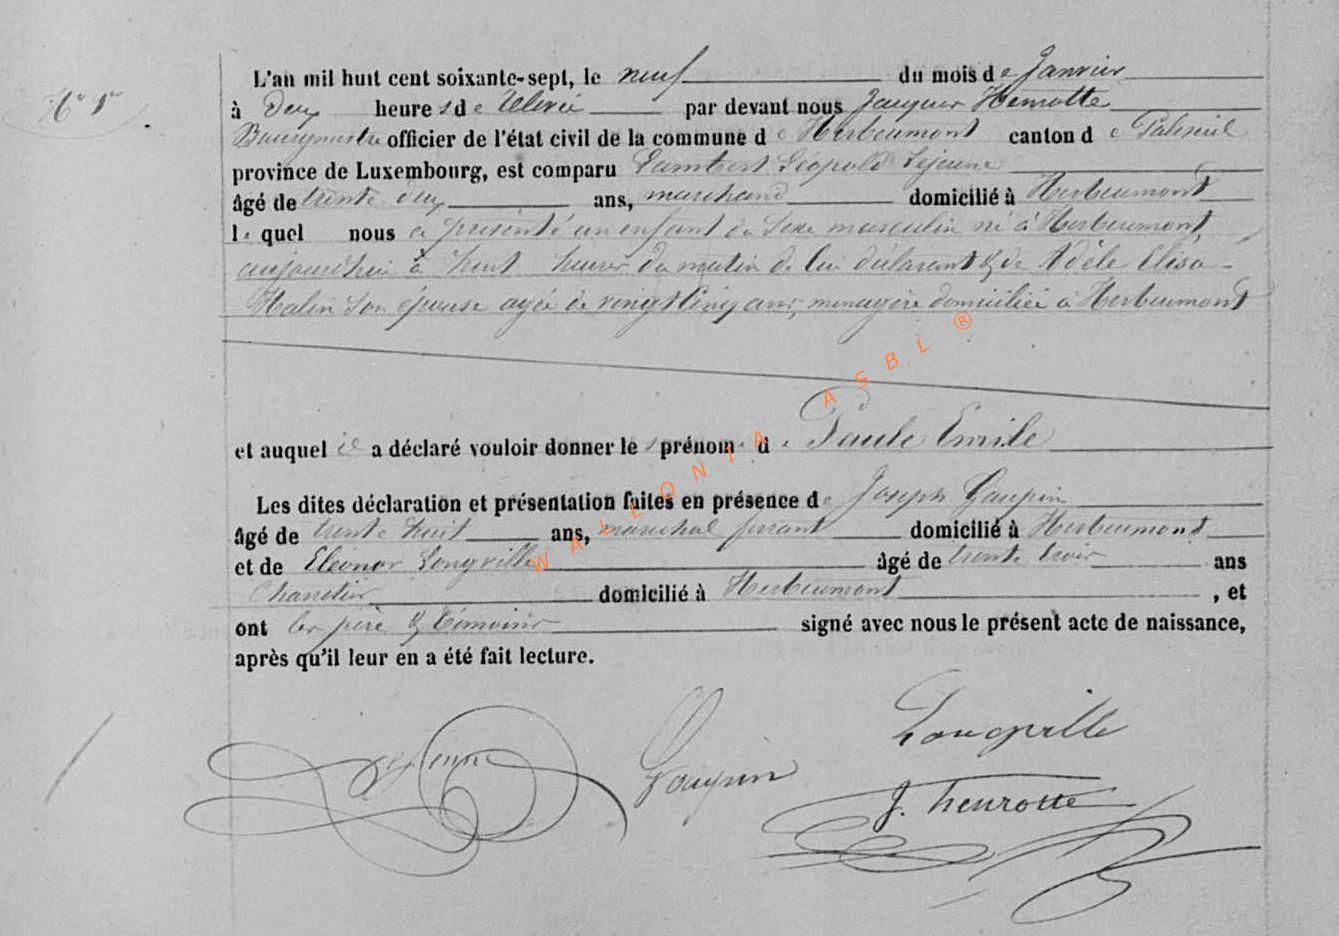 N° 1er
L'an mil huit cent soixante-sept, le neuf du mois de Janvier
à Deux heures de Relevée par devant nous Jacques Henrotte
Bourgmestre officier de l'état civil de la commune de Herbeumont canton de Paliseul
province de Luxembourg, est comparu Lambert Léopold Lejeune
âgé de trente deux ans, marchand domicilié à Herbeumont
lequel nous a présenté un enfant du Sexe masculin né à Herbeumont,
aujourd'hui à huit heures du matin de lui déclarant & de Adèle Elisa
Halin Son épouse agée de vingt Cinq ans, menagère domiciliée à Herbeumont
et auquel il a déclaré vouloir donner le prénom de Paule Emile
Les dites déclaration et présentation faites en présence de Joseph Gaupin
âgé de trente huit ans, marechal ferrant domicilié à Herbeumont
et de Eléonor Longville âgé de trente trois ans
domicilié à Herbeumont, et
ont les père & témoins signé avec nous le présent acte de naissance,
après qu'il leur en a été fait lecture.
Longville
Lejeune Gaupin
J. henrotte
WALLONIA ASBL ®